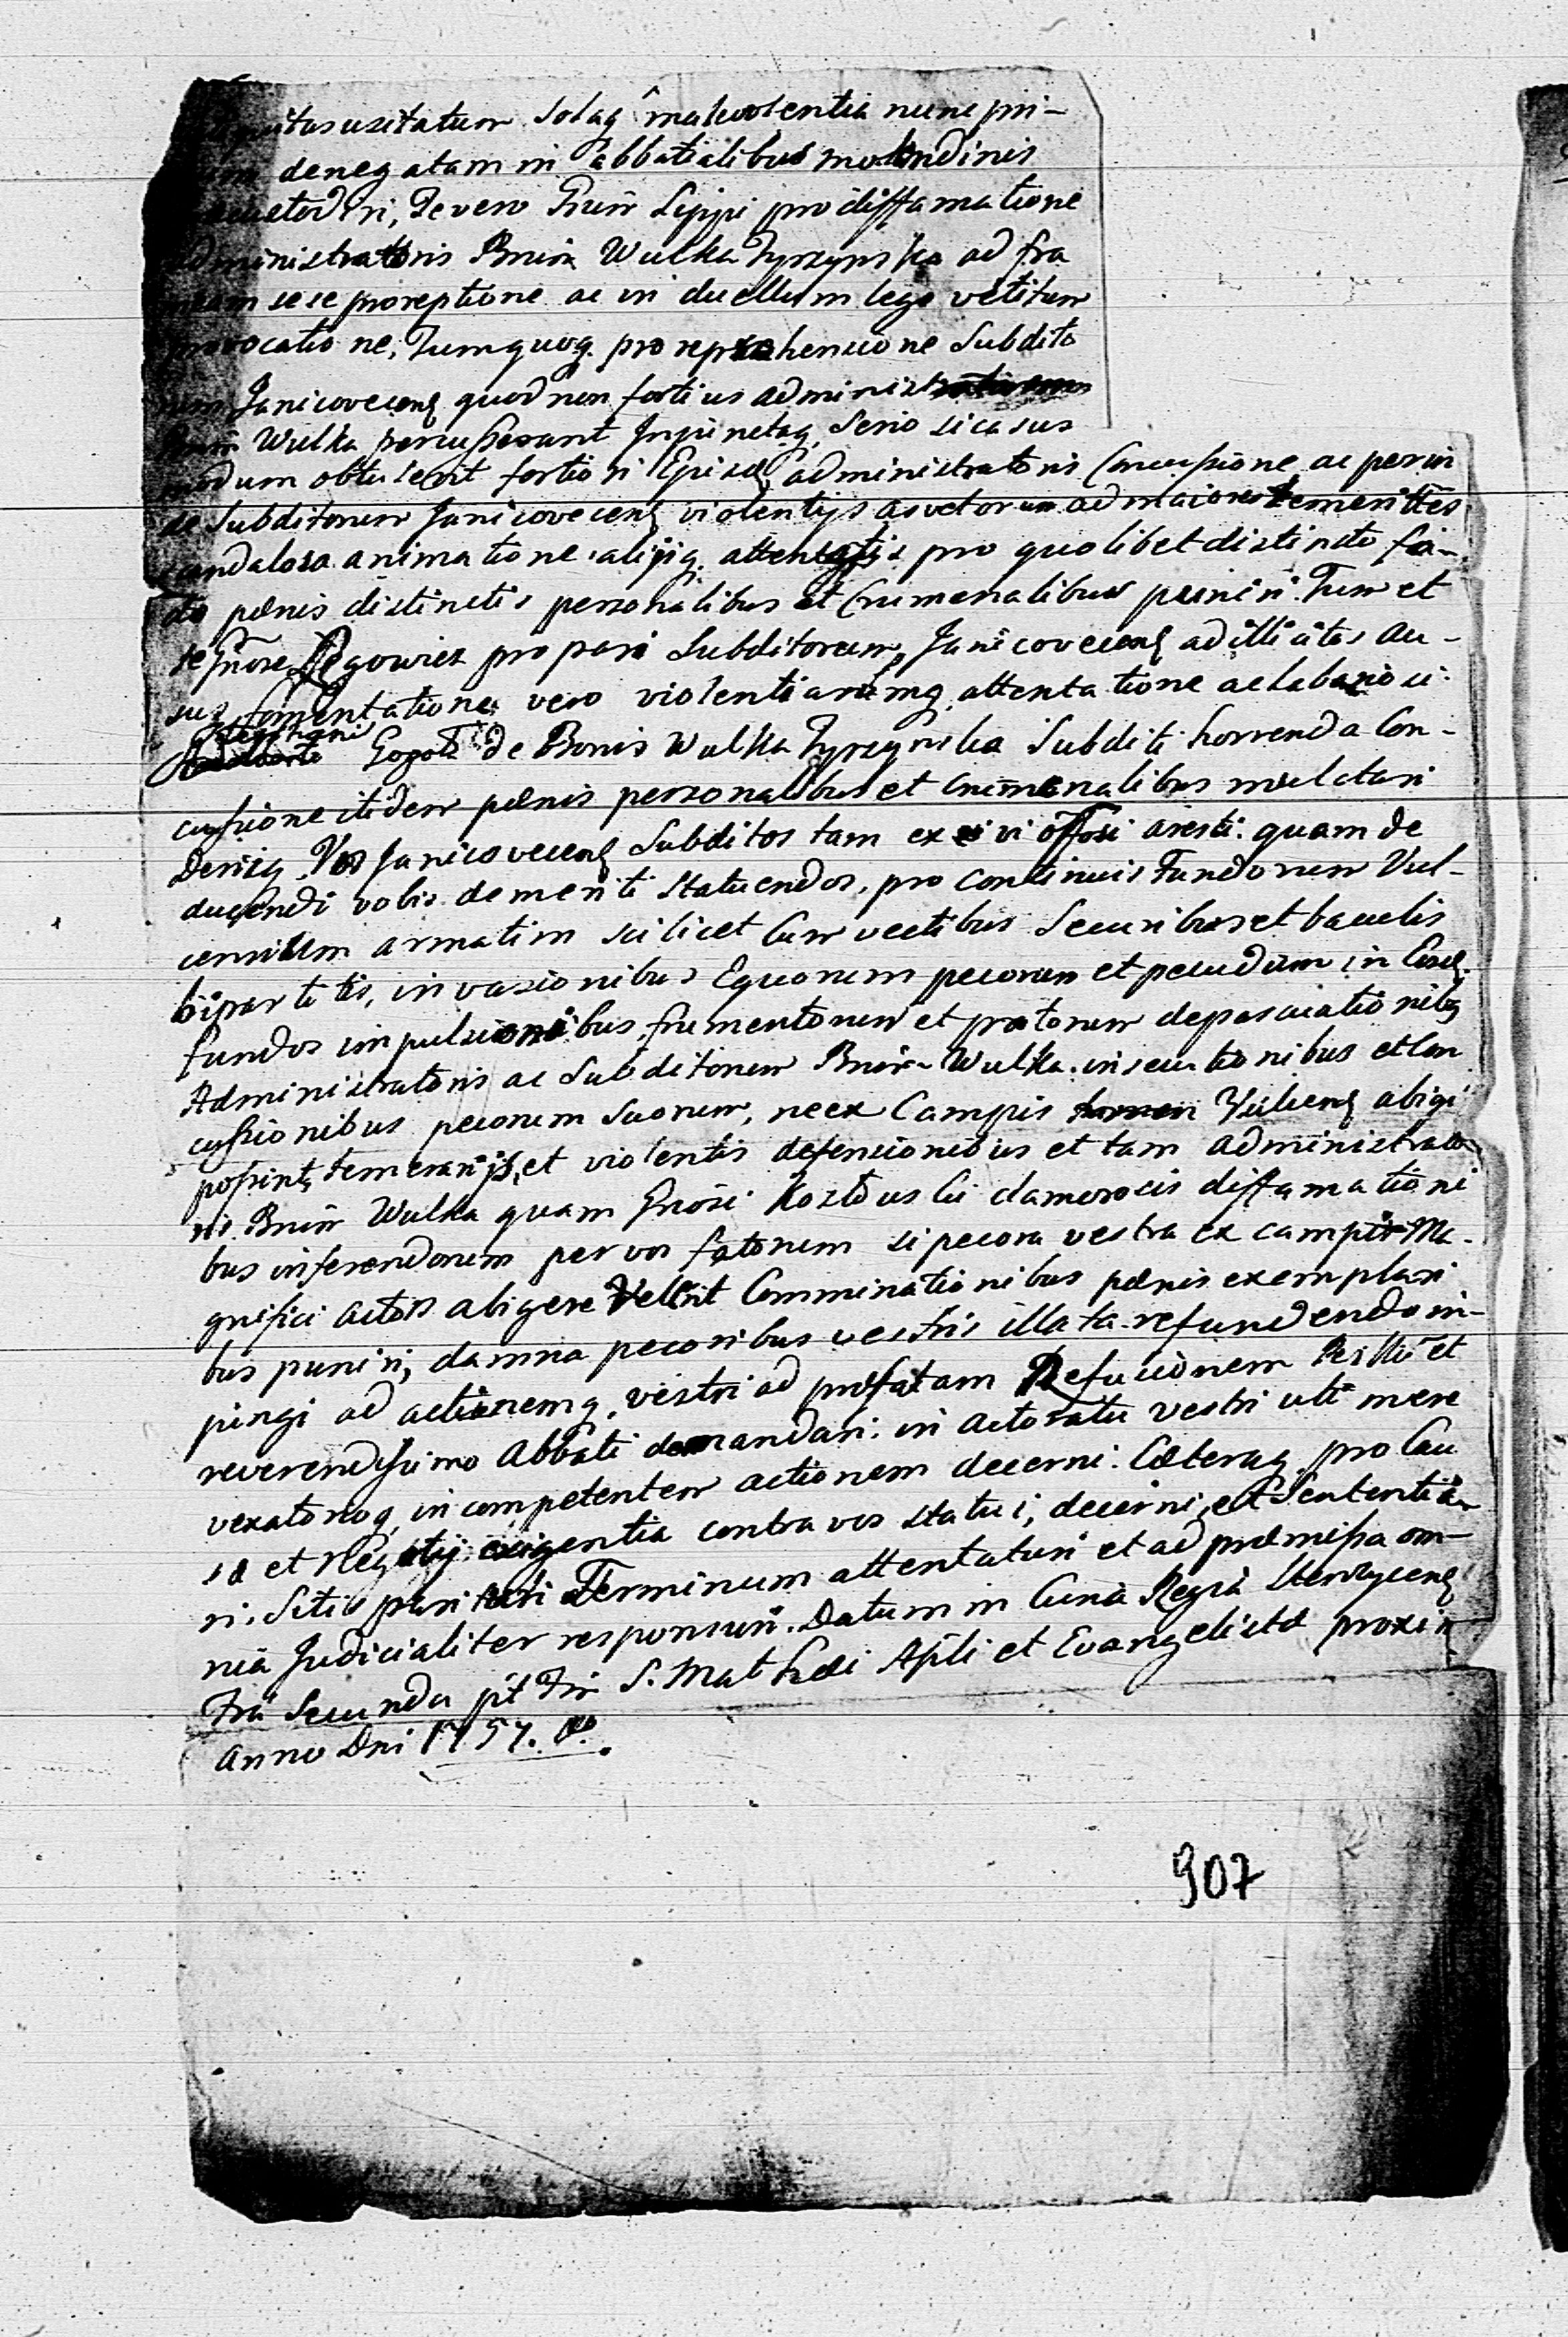 usitatum Solaq malevolentia nunc pri-
denegatam in abbatialibus molendinis
ri, Te vero Lippi pro diffamatione
administratoris Bnrm Wulka Tyrzynska ad fra
meam sese proreptione ac in duellum lege vetitum
provocatione, Tumquoq. pro reprehensione Subdito
rum Janicovecens quod non fortius administratorem
Bnrm Wulka percusserant Injunctaq, Serio si casus
modum obtulerit fortiori Ejusd administratoris Concussione ac perin
de Subditorum Janicovecens violentijs asvetorum ad maiores temerittes
scandalosa animatione alijsq. attentatis pro quolibet distincto fa-
cto pænis distinctis personalibus et Criminalibus puniri. Tum et
Te Gnose Regowicz pro pari Subditorum, Janicovecens ad illicitos au-
sus fomentatione, vero violentiarumq, attentatione ac laboriosi
Stephani Gogol de Bonis Wulka Tyrzynska Subditi horrenda Con-
cussione itidem pænis personalibus et criminalibus mulctari
Deniq. Vos Janicovecens Subditos tam ex vi offosi aresti. quam de
ducendi vobis demeriti statuendos, pro continuis Fundorum Vul-
censium armatim scilicet Cum vectibus Securibus et baculis
bipartitis, invasionibus Equorum pecorum et pecudum in Eosd.
fundos impulsionibus, frumentorum et pratorum depascuationibq
Administratoris ac Subditorum Bnrm Wulka. insecutionibus et Con
cussionibus pecorum Suorum, ne ex Campis Vulcens abigi
possint, temerarijs, et violentis defensionibus et tam administrato
ris Bnrm Wulka quam Gnosi Kostouski clamorosis diffamationi
bus inferendorum per vos fatorum si pecora vestra ex campis Ma-
gnifici actoris abigere Vellent Comminationibus pænis exemplari
bus puniri, damna pecoribus vestris illata refundendo in-
jungi ad actionemq. vestri ad præfatam Refusionem Perillri et
reverendissimo Abbati demandari. in actoratu vestri uti mere
vexatorioq, in competentem actionem decerni. Cæteraq. pro Cau
sa et Negotij exigentia contra vos statui, decerni, et Sententia
ri. Sitis pariter Terminum attentaturi et ad præmissa om-
nia Judicialiter responsuri. Datum in Curia Regia Stenzycens
Fria Secunda pt Fm S. Mathæi Apli et Evangelistæ proxim
Anno Dni 1757. o.
907